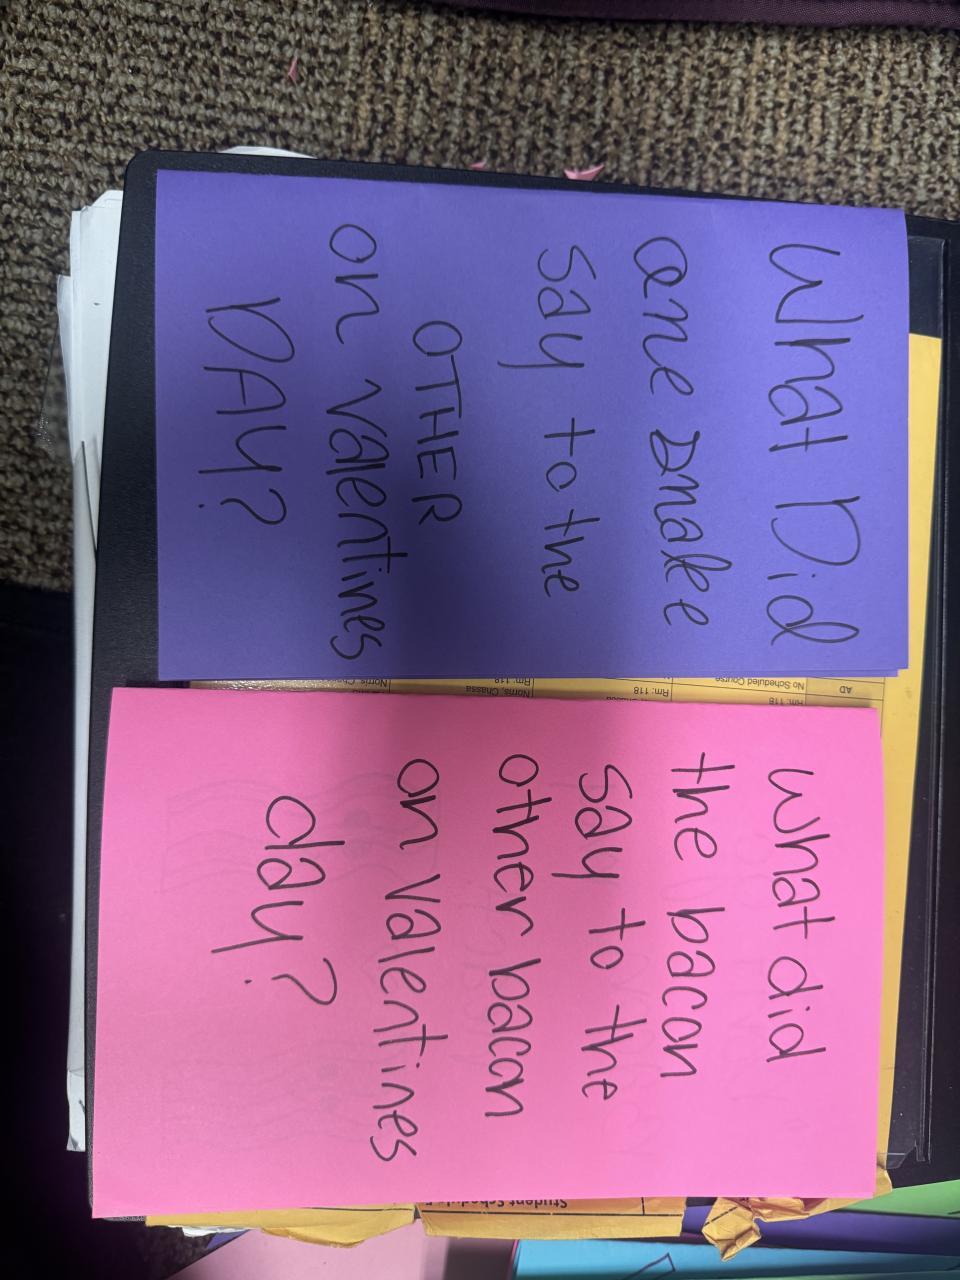 What Did
one snake
say to the
OTHER
on valentines
DAY?
AD
No Scheduled Course
Rm: 118
Rm: 118
Norris, Chassa
Rm: 118
what did
the bacon
say to the
other bacon
on valentines
day?